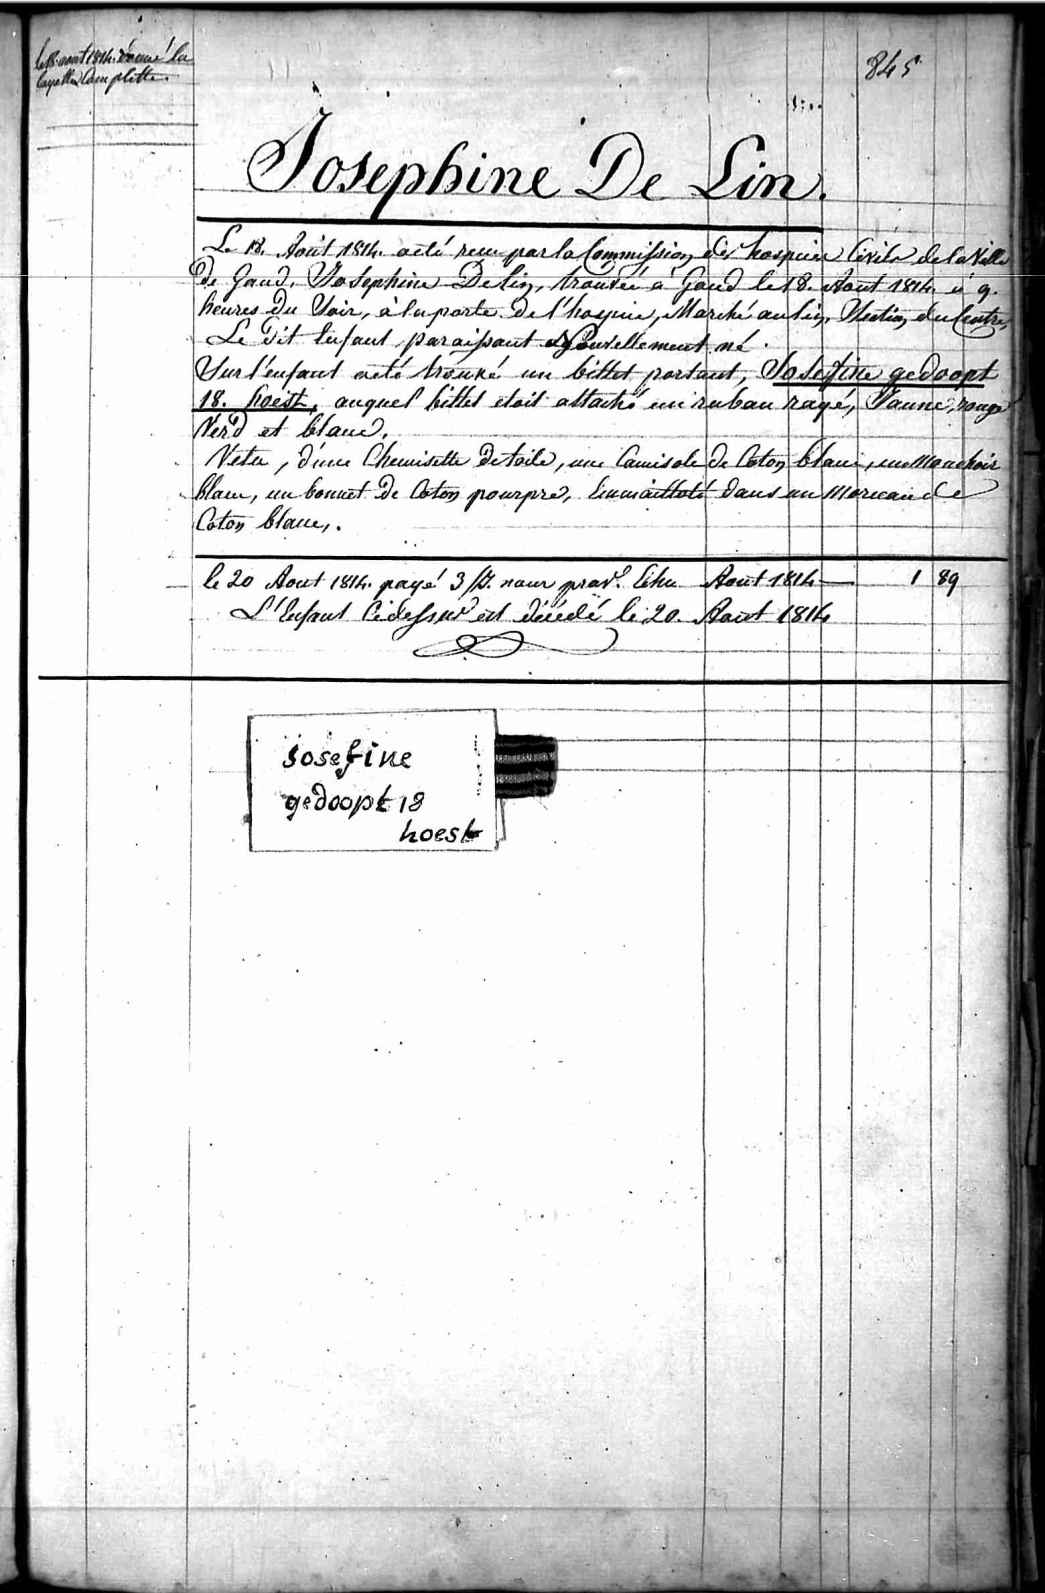 le 18 aout 1814. donné la
layette Complette.
845
Josephine De Lin.
Le 18. Août 1814. a eté recu par la Commission des hospices Civils de la Ville
de Gand, Josephine De Lin, trouvée à Gand le 18. Aout 1814. à 9.
heures du Soir, à la porte de l'hospice, Marché au lin, Section du Centre,
Le dit Enfant paraissant Nouvellement né.
Sur l'enfant a eté trouvé un billet portant, Josefine gedoopt
18. hoest, auquel billet etoit attaché un ruban rayé, Jaune, rouge
Verd et blanc.
Vetu, d'une Chemisette de toile, une Camisole de Coton blanc, un Mouchoir
blanc, un bonnet de Coton pourpre, Emmailloté dans un Morceau de
Coton blanc,.
le 20 Aout 1814. payé 3 pr. Aout 1814 — 1 89
L'Enfant Cidessus est décédé le 20. Aout 1814
Josefine
gedoopt 18
hoest